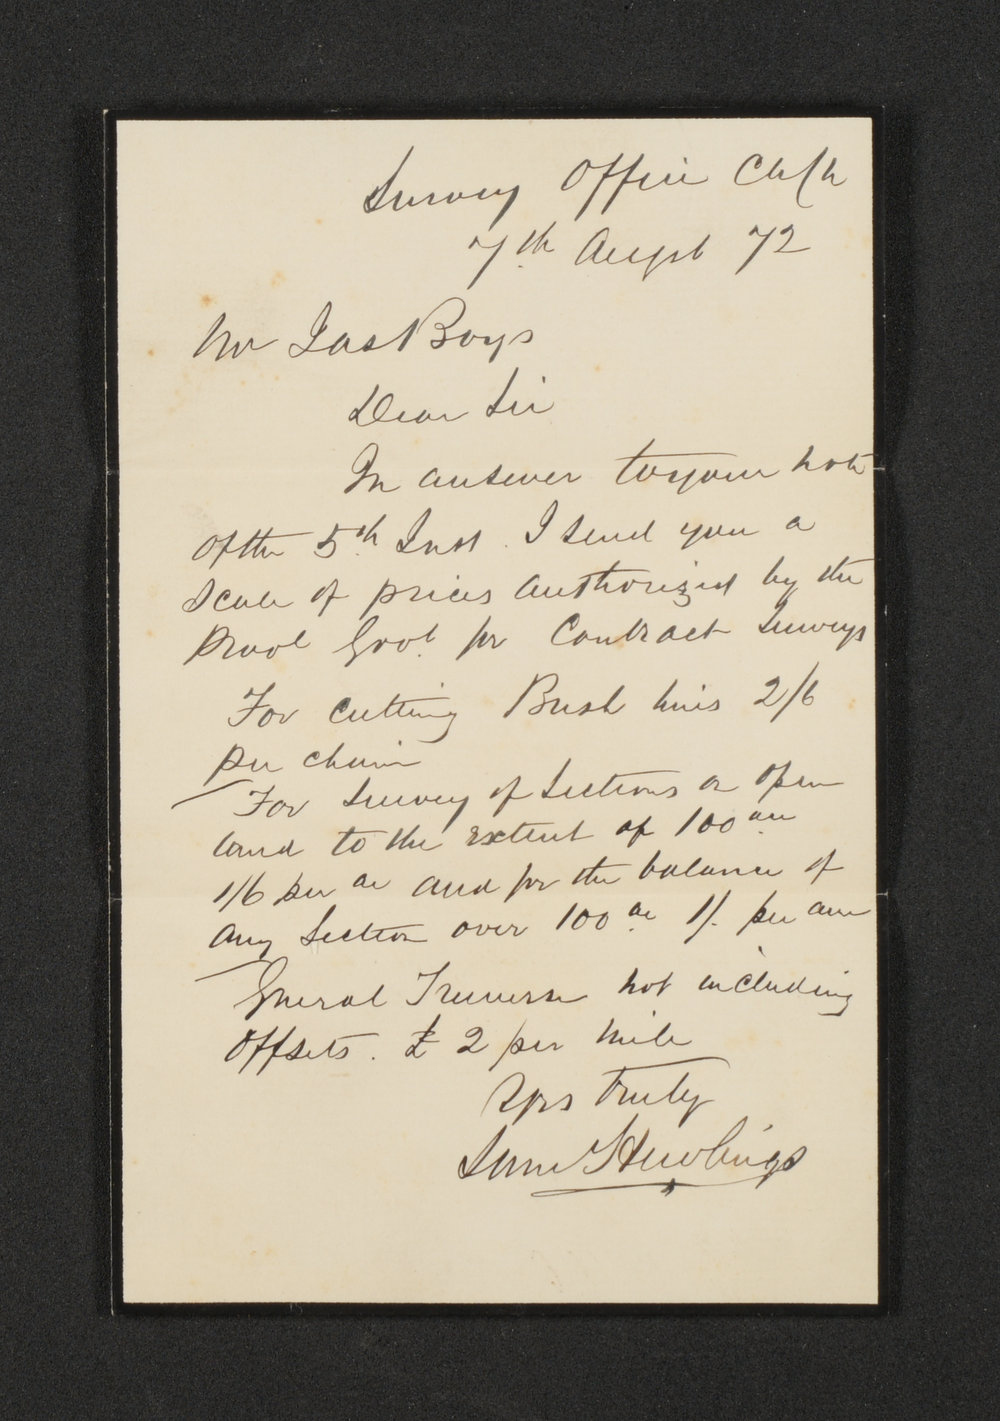 Survey Office Ch/Ch
7th Augst 72
Mr Jas Boys
Dear Sir
In answer to your note
of the 5th Inst. I send you a
scale of prices authorized by the
Provl Govt for Contract Surveys
For cutting Bush lines 2/6
per chain
For Survey of Sections on open
land to the extent of 100 acr
1/6 per ac and for the balance of
any Section over 100 ac 1/- per acre
General Traverse not including
offsets. £2 per mile
Yrs truly
Saml Hewlings